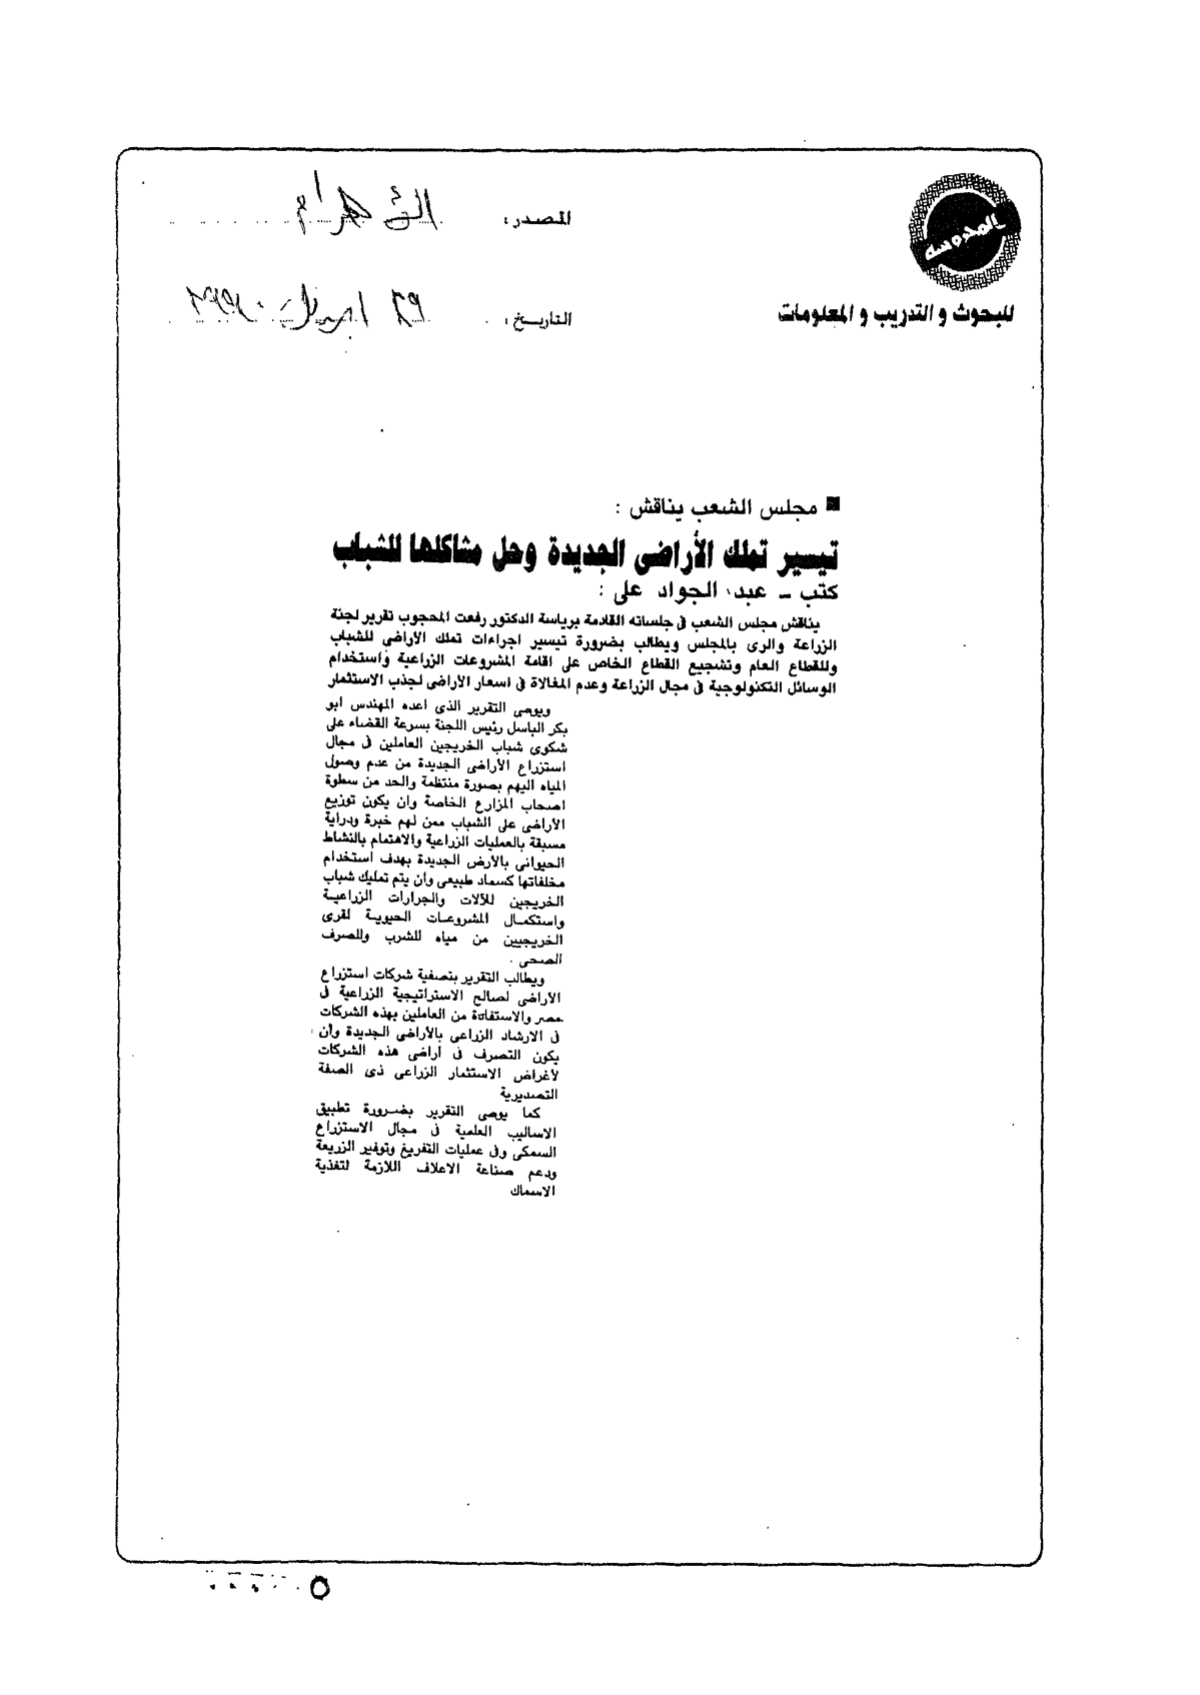 المحروسة
للبحوث و التدريب و المعلومات
المصدر: الأهرام
التاريخ: ٢٩ ابريل ١٩٩٠
■ مجلس الشعب يناقش :
تيسير تملك الأراضى الجديدة وحل مشاكلها للشباب
كتب ـ عبد الجواد على :
يناقش مجلس الشعب فى جلساته القادمة برياسة الدكتور رفعت المحجوب تقرير لجنة
الزراعة والرى بالمجلس ويطالب بضرورة تيسير اجراءات تملك الأراضى للشباب
وللقطاع العام وتشجيع القطاع الخاص على اقامة المشروعات الزراعية واستخدام
الوسائل التكنولوجية فى مجال الزراعة وعدم المغالاة فى اسعار الأراضى لجذب الاستثمار
ويوصى التقرير الذى اعده المهندس ابو
بكر الباسل رئيس اللجنة بسرعة القضاء على
شكوى شباب الخريجين العاملين فى مجال
استزراع الأراضى الجديدة من عدم وصول
المياه اليهم بصورة منتظمة والحد من سطوة
اصحاب المزارع الخاصة وان يكون توزيع
الأراضى على الشباب ممن لهم خبرة ودراية
مسبقة بالعمليات الزراعية والاهتمام بالنشاط
الحيوانى بالأرض الجديدة بهدف استخدام
مخلفاتها كسماد طبيعى وأن يتم تمليك شباب
الخريجين للآلات والجرارات الزراعية
واستكمال المشروعات الحيوية لقرى
الخريجيين من مياه للشرب وللصرف
الصحى .
ويطالب التقرير بتصفية شركات استزراع
الأراضى لصالح الاستراتيجية الزراعية فى
مصر والاستفادة من العاملين بهذه الشركات
فى الارشاد الزراعى بالأراضى الجديدة وأن
يكون التصرف فى أراضى هذه الشركات
لأغراض الاستثمار الزراعى ذى الصفة
التصديرية
كما يوصى التقرير بضرورة تطبيق
الاساليب العلمية فى مجال الاستزراع
السمكى وفى عمليات التفريغ وتوفير الزريعة
ودعم صناعة الاعلاف اللازمة لتغذية
الاسماك